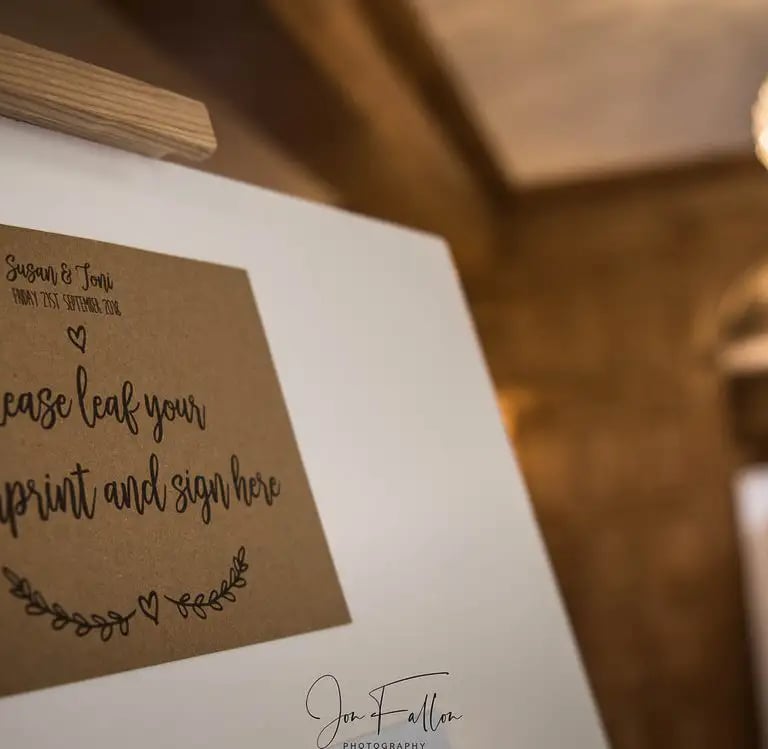 Susan & Toni
FRIDAY 21ST SEPTEMBER 2018
ease leaf your
print and sign here
Jon Fallon
PHOTOGRAPHY